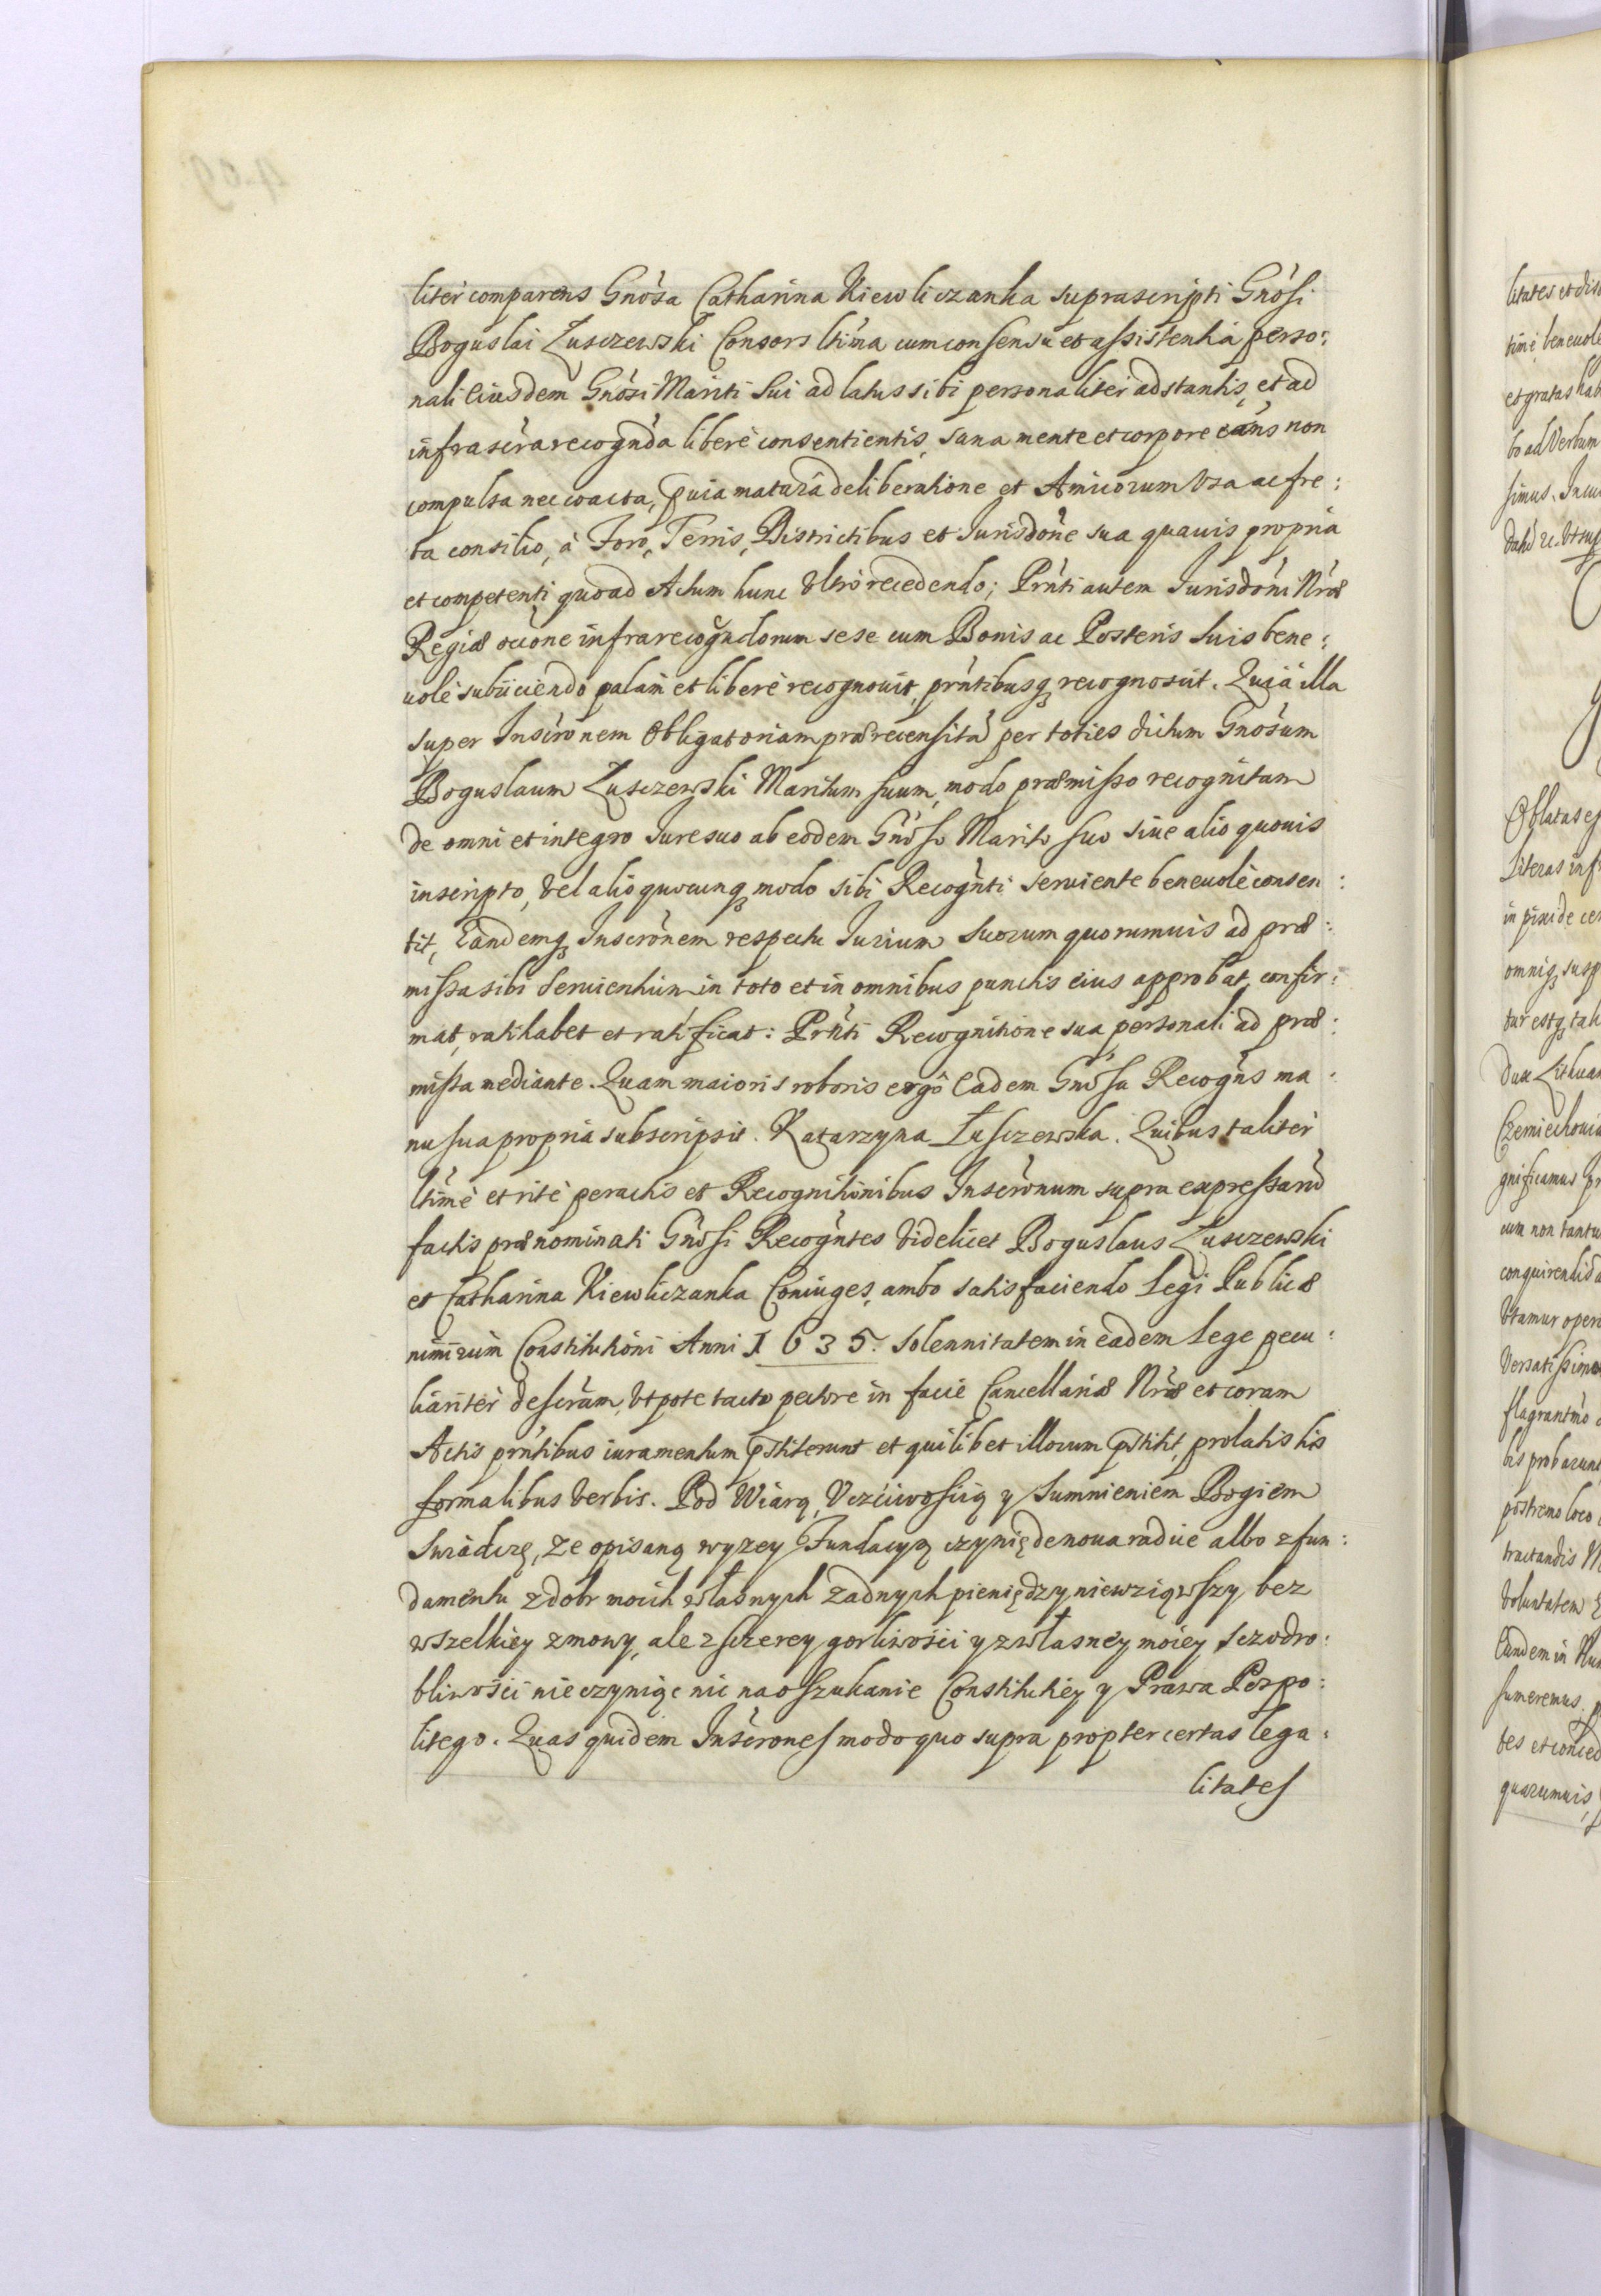 liter comparens Gnosa Catharina Kiewliczanka suprascripti Gnosi
Boguslai Łusczewski Consors ltima cum consensu et assistentia perso:
nali eiusdem Gnosi Mariti sui ad latus sibi personaliter adstantis, et ad
infrascra recognda liberè consentientis, sana mente et corpore eans non
compulsa nec coacta, quia maturâ deliberatione et Amicorum Vsa ac fre:
ta consilio, à Foro, Terris, Districtibus et Jurisdone sua quauis propria
et competenti quoad Actum hunc Vltrò recedendo; Prnti autem Jurisdoni Nræ
Regiæ occone infrarecogndorum sese cum Bonis ac Posteris Suis bene:
uolè subijciendo palam et liberè recognouit, prntibusq recognoscit. Quia illa
super Inscronem Obligatoriam prærecensitã per toties dictum Gnosum
Boguslaum Łusczewski Maritum suum, modo præmisso recognitam
de omni et integro Iure suo ab eodem Gnoso Marito suo siue alio quouis
inscripto, Vel alio quocunq modo sibi Recognti seruiente beneuolè consen:
tit, Eandemq Inscronem respectu Iurium suorum quorumuis ad præ:
missa sibi seruientium in toto et in omnibus punctis eius approbat, confir:
mat, ratihabet et ratificat: Prnti Recognitione sua personali ad præ:
missa mediante. Quam maioris roboris ergô Eadem Gnosa Recogns ma:
nu sua propria subscripsit. Katarzyna Łusczewska. Quibus taliter
ltimè et ritè peractis et Recognitionibus Inscronum supra expressarũ
factis prænominati Gnosi Recogntes Videlicet Boguslaus Łusczewski
et Catharina Kiewliczanka Coniuges, ambo satisfaciendo Legi Publicæ
nimirum Constitutioni Anni 1635. Solennitatem in eadem Lege pecu:
liariter descram, Vtpote tacto pectore in facie Cancellariæ Nræ et coram
Actis prntibus iuramentum pstiterunt et quilibet illorum pstitit, prolatis his
formalibus Verbis. Pod Wiarą, Vczciwosćią y Sumnieniem Bogiem
Swiadczę, Ze opisaną wyzey Fundacyą czynię de noua radice albo z fun:
damentu z dobr moich własnych zadnych pieniędzy niewziąwszy bez
wszelkiey zmowy, ale z sczerey gorliwośći y z własney moiey sczodro:
bliwośći nie czyniąc nic na oszukanie Constitutiey y Prawa Pospo:
litego. Quas quidem Inscrones modo quo supra propter certas lega:
litates